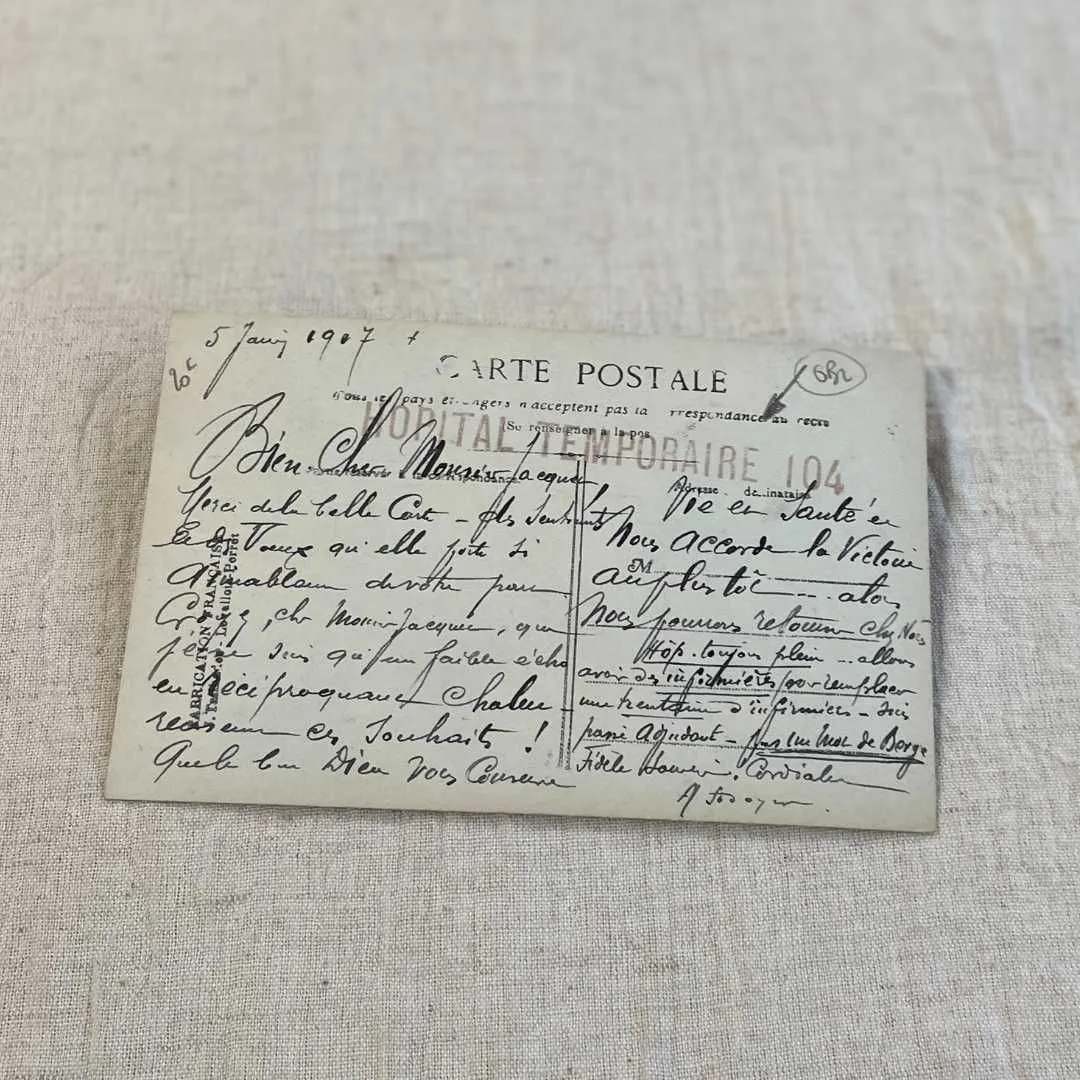 5 Janv 1917 +
20c
CARTE POSTALE
OBL
Tous les pays étrangers n'acceptent pas la correspondance au recto
Se renseigner à la poste
HOPITAL TEMPORAIRE 104
Correspondance
Adresse destinataire
FABRICATION FRANÇAISE
Bien Cher Monsieur Jacques
Merci de la belle Carte - Les Sentiments
et Vœux qu'elle porte si
Aimablement de votre part
Croyez, cher Monsieur Jacques, que
je ne suis qu'un faible écho
en réciproquant chaleu-
reusement ces Souhaits !
Que le bon Dieu Vous Conserve
Vie et Santé et
Nous accorde la Victoire
M
au plus tôt ... alors
Nous pourrons retourner chez Nous
Hôp. toujours plein ... allons
avoir des infirmières pour remplacer
une trentaine d'infirmiers - suis
passé Adjudant - pas un mot de Berge
Fidèle souvenir. Cordialement